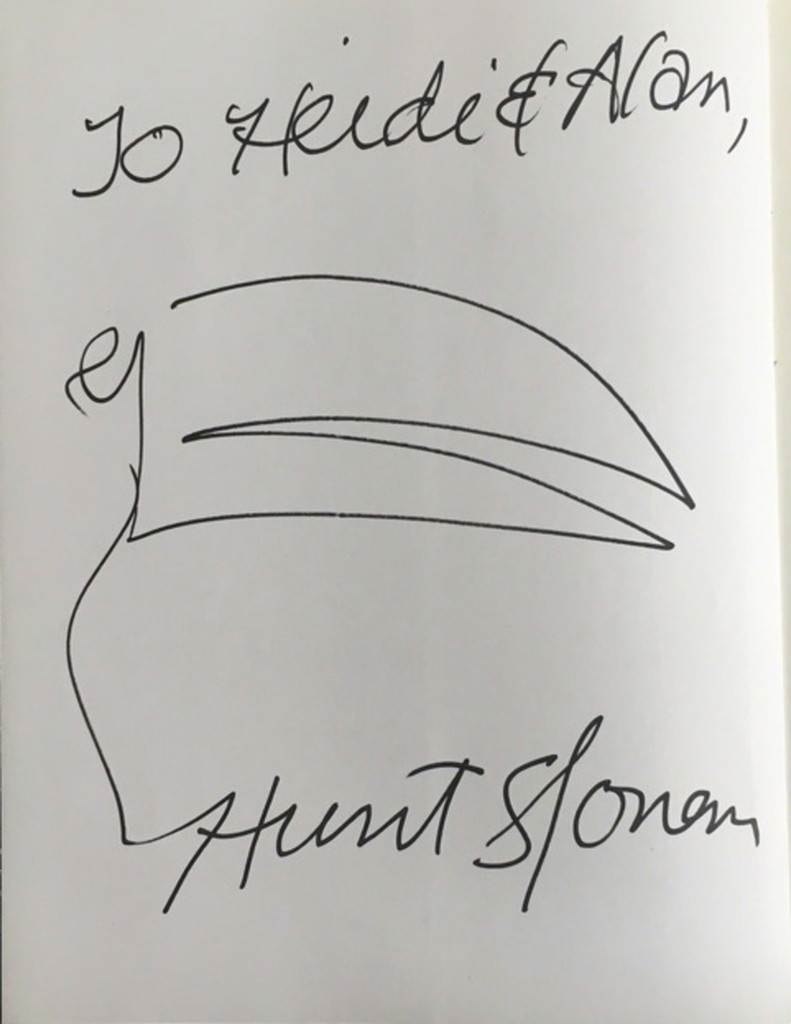 To Heidi & Alan,
Hunt Slonem